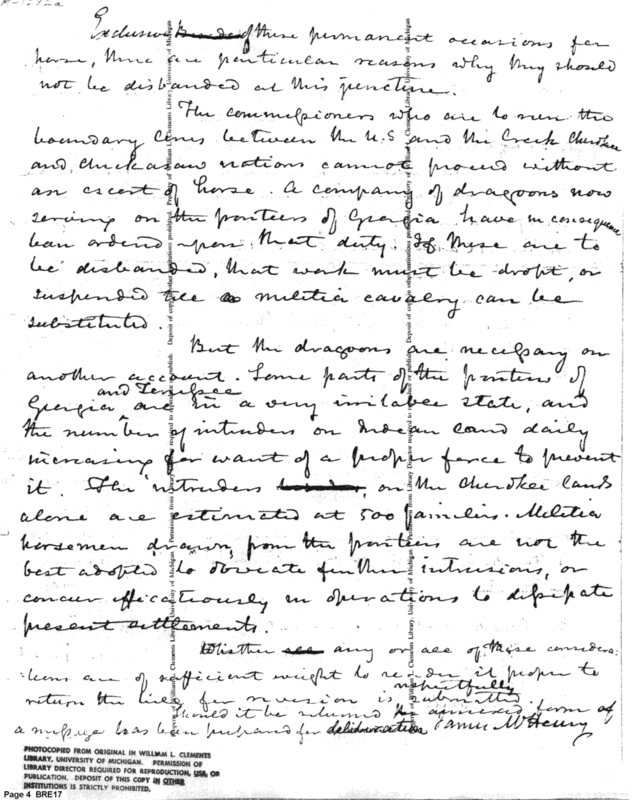 Exclusive of these permanent occasions for
horse, there are particular reasons why they should
not be disbanded at this juncture.
The commissioners who are to run the
boundary lines between the U.S and the Creek Cherokee
and Chickasaw nations cannot proceed without
an escort of horse. A company of dragoons now
serving on the frontiers of Georgia have in consequence
been ordered upon that duty. If these are to
be disbanded, that work must be dropt, or
suspended till a militia cavalry can be
substituted.
But the dragoons are necessary on
another account. Some parts of the frontiers of
and Tenessee
Georgia are in a very irritable state, and
the number of intruders on Indean land daily
increasing for want of a proper force to prevent
it. The intruders on the Cherokee lands
alone are estimated at 500 families. Militia
horsemen drawn from the frontiers are not the
best adopted to obviate further intrusions, or
concur efficatiously in operations to dissipate
present settlements.
Whether any or all of these considera
tions are of sufficient weight to render it proper to
respectfully
return the bill for revision is submitted
Should it be returned annexed form of
a message has been prepared for deliberation James McHenry
PHOTOCOPIED FROM ORIGINAL IN WILLIAM L. CLEMENTS
LIBRARY, UNIVERSITY OF MICHIGAN. PERMISSION OF
LIBRARY DIRECTOR REQUIRED FOR REPRODUCTION, USE, OR
PUBLICATION. DEPOSIT OF THIS COPY IN OTHER
INSTITUTIONS IS STRICTLY PROHIBITED.
Page 4 BRE17